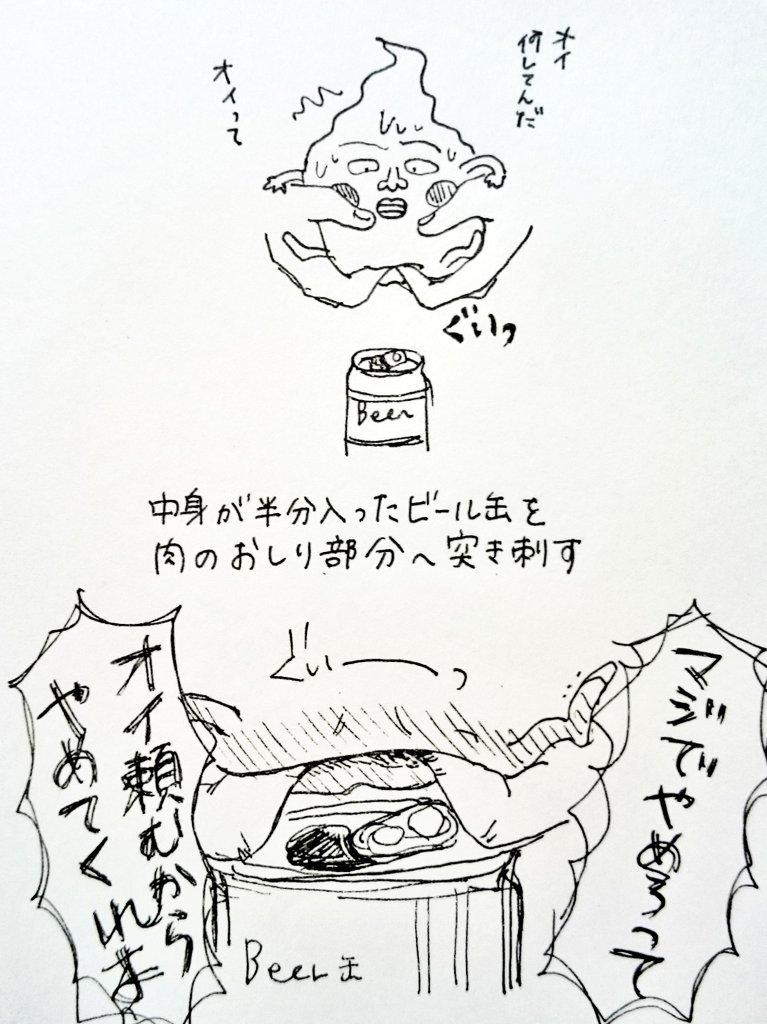 オイ
何してんだ
オイって
ぐいっ
Beer
中身が半分入ったビール缶を
肉のおしり部分へ突き刺す
ぐいーっ
マジでやめろって
オイ頼むから
やめてくれよ
Beer缶